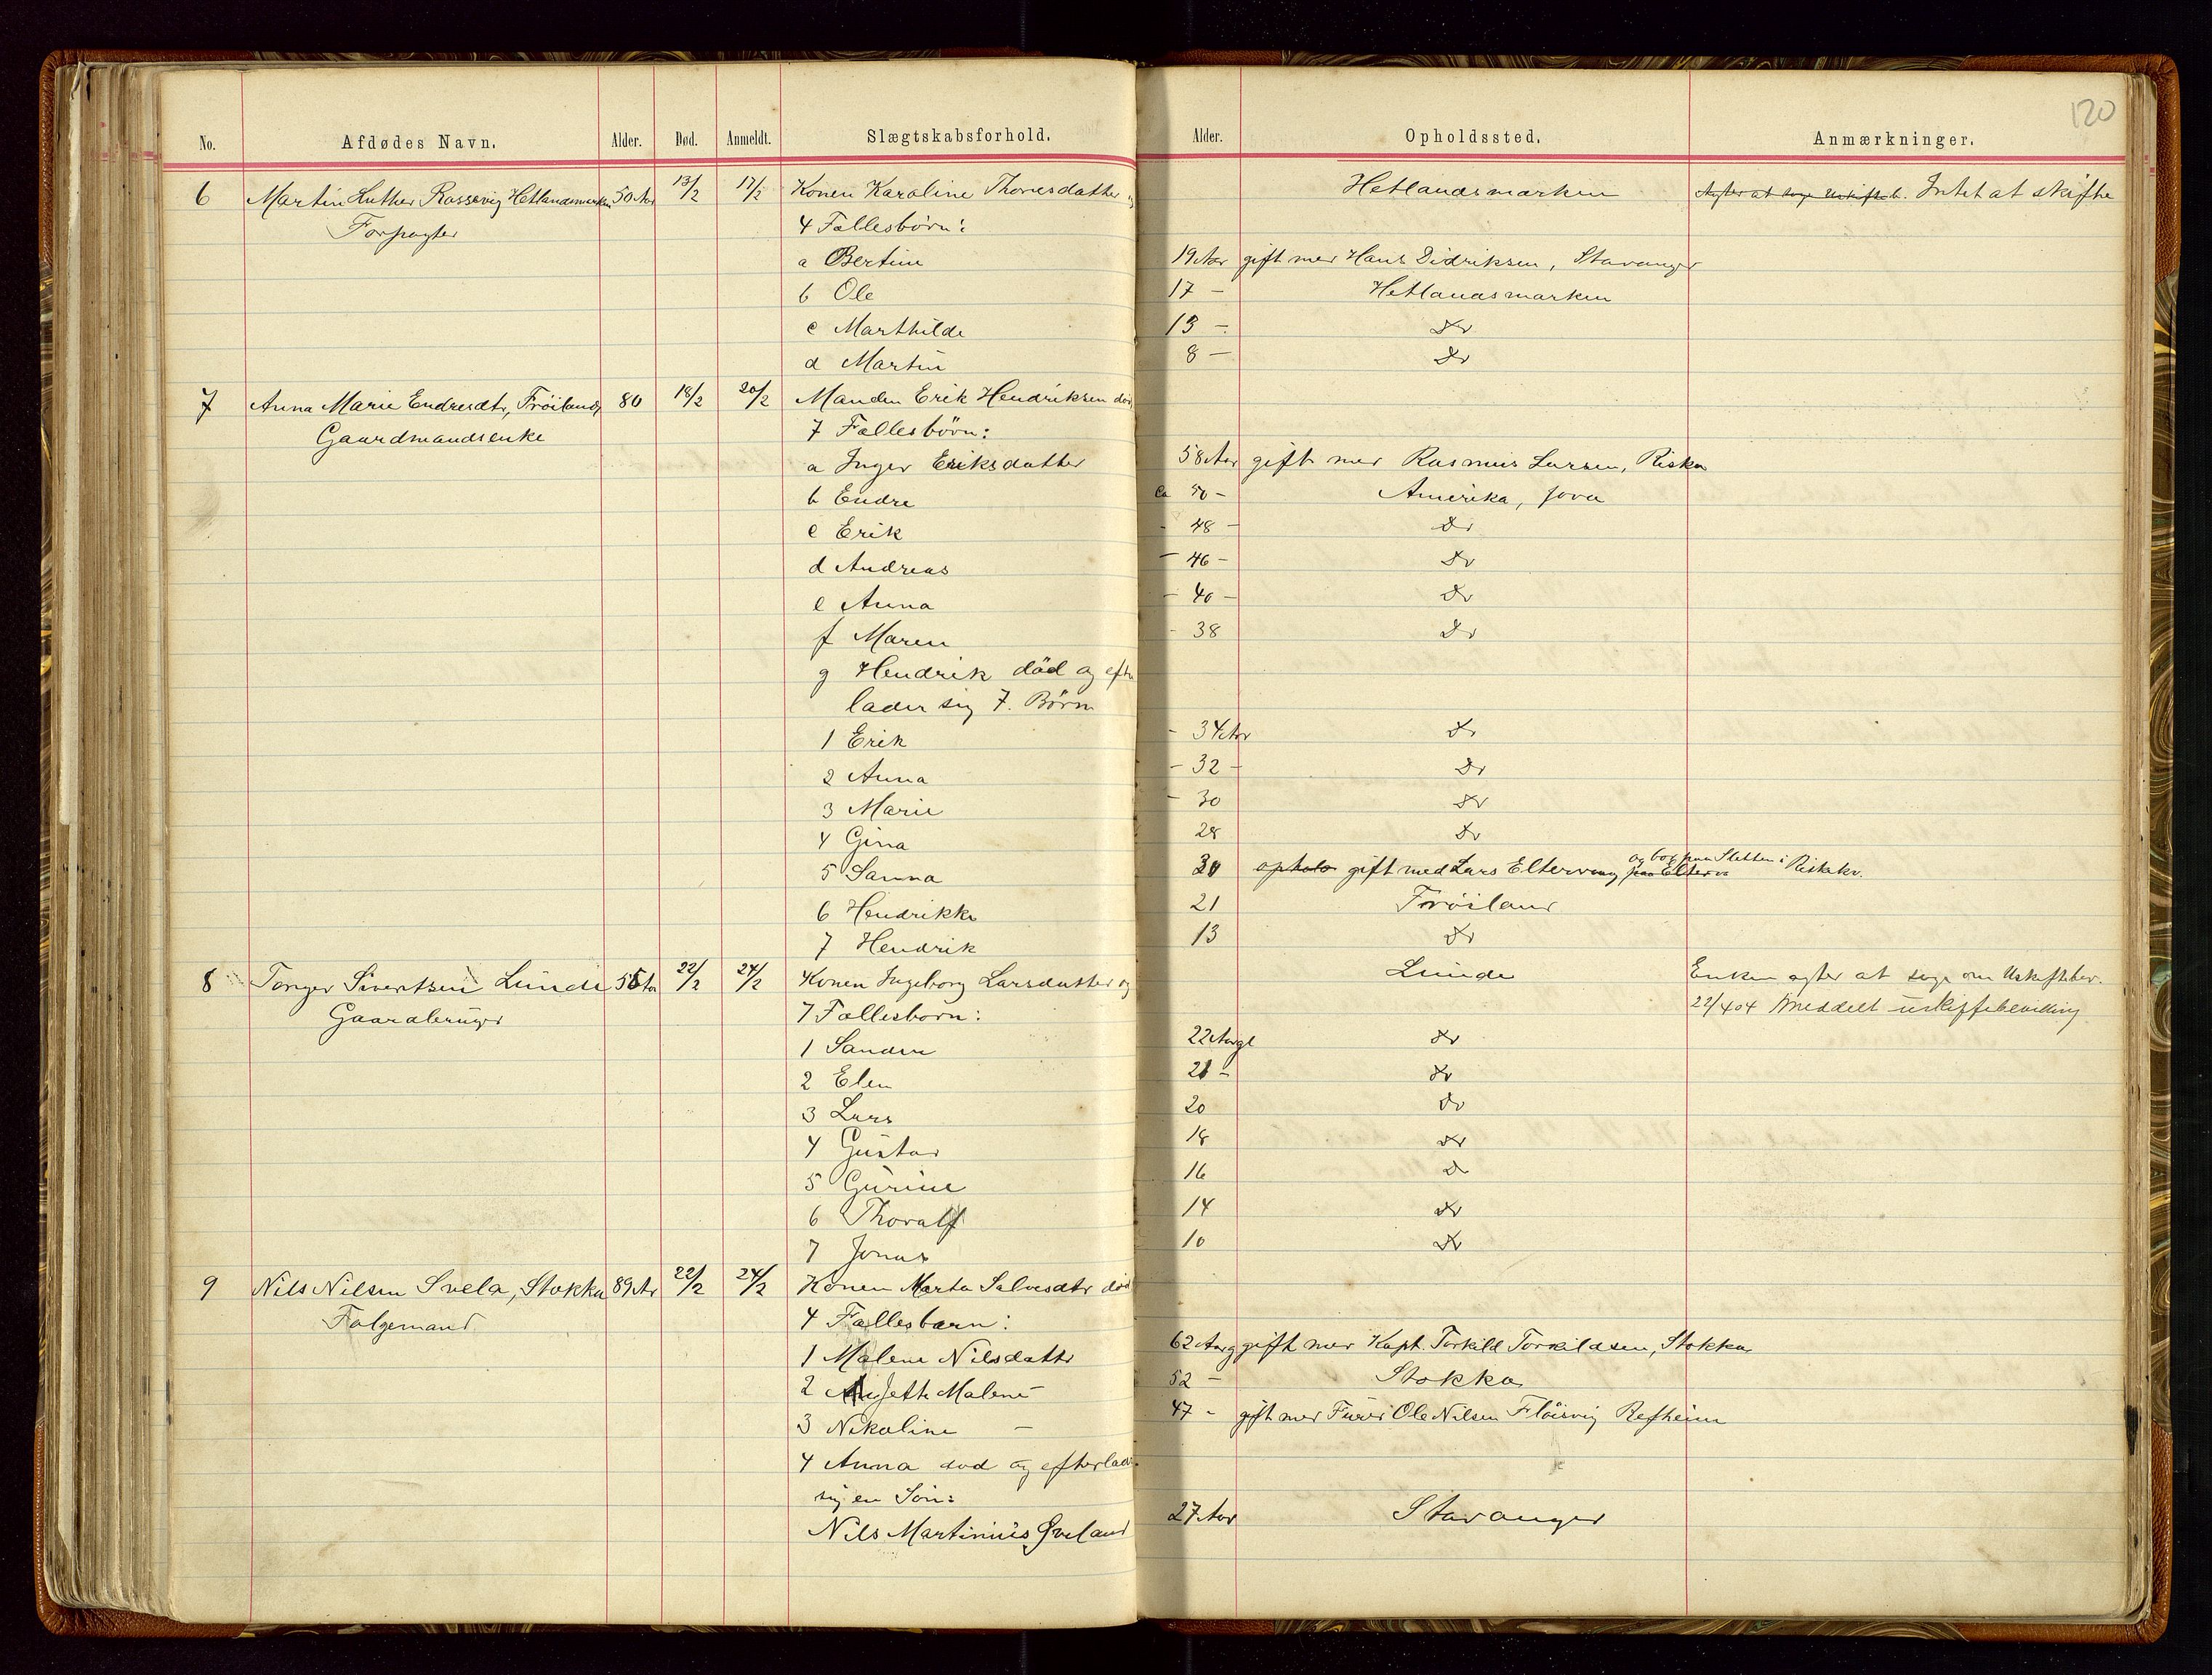 120
No. Afdødes Navn. Alder. Død. Anmeldt. Slægtskabsforhold. Alder. Opholdssted. Anmærkninger.
6 Martin Luther Rossavig Hetlandsmarken 50 Aar 13/2 17/2 Konen Karoline Thoresdatter og Hetlandsmarken Agter at søge Uskifteb. Intet at skifte
Forpagter 4 Fællesbörn:
a Bertine 19 Aar gift med Hans Didriksen, Stavanger
b Ole 17 - Hetlandsmarken
c Marthilde 13 - do
d Martin 8 - do
7 Anna Marie Endresdtr, Fröiland 80 18/2 20/2 Manden Erik Hendriksen död
Gaardmandsenke 7 Fællesbörn:
a Inger Eriksdatter 58 Aar gift med Rasmus Larsen, Riska
b Endre Ca 50 - Amerika, Jova
c Erik - 48 - do
d Andreas - 46 - do
e Anna - 40 - do
f Maren - 38 do
g Hendrik död og efter
lader sig 7. Börn
1 Erik - 34 Aar do
2 Anna - 32 - do
3 Marie - 30 do
4 Gina 28 do
5 Sanna 30 ophold gift med Lars Eltervaag paa Elterv og bor paa Sletten i Riskekv.
6 Hendrikke 21 Fröiland
7 Hendrik 13 do
8 Torger Sivertsen Lunde 55 Aar 22/2 24/2 Konen Ingeborg Larsdatter og Lunde Enken agter at søge om Uskiftebev.
Gaardbruger 7 Fællesbörn: 22/4 04 meddelt uskiftebevilling
1 Sandra 22 Aar gl do
2 Elen 21 - do
3 Lars 20 do
4 Gustav 18 do
5 Gurine 16 do
6 Thoralf 14 do
7 Jonas 10 do
9 Nils Nilsen Svela, Stokka 89 Ar 22/2 24/2 Konen Marta Salvesdtr död
Folgemand 4 Fællesbørn:
1 Malene Nilsdattr 62 Aar g gift med Kapt. Torkild Torkildsen, Stokka
2 Malene - 52 - Stokka
3 Nikoline - 47 - gift med Furer Ole Nilsen Flöisvig Refheim
4 Anna död og efterlader
sig en Sön:
Nils Martinius Sveland 27 Aar Stavanger